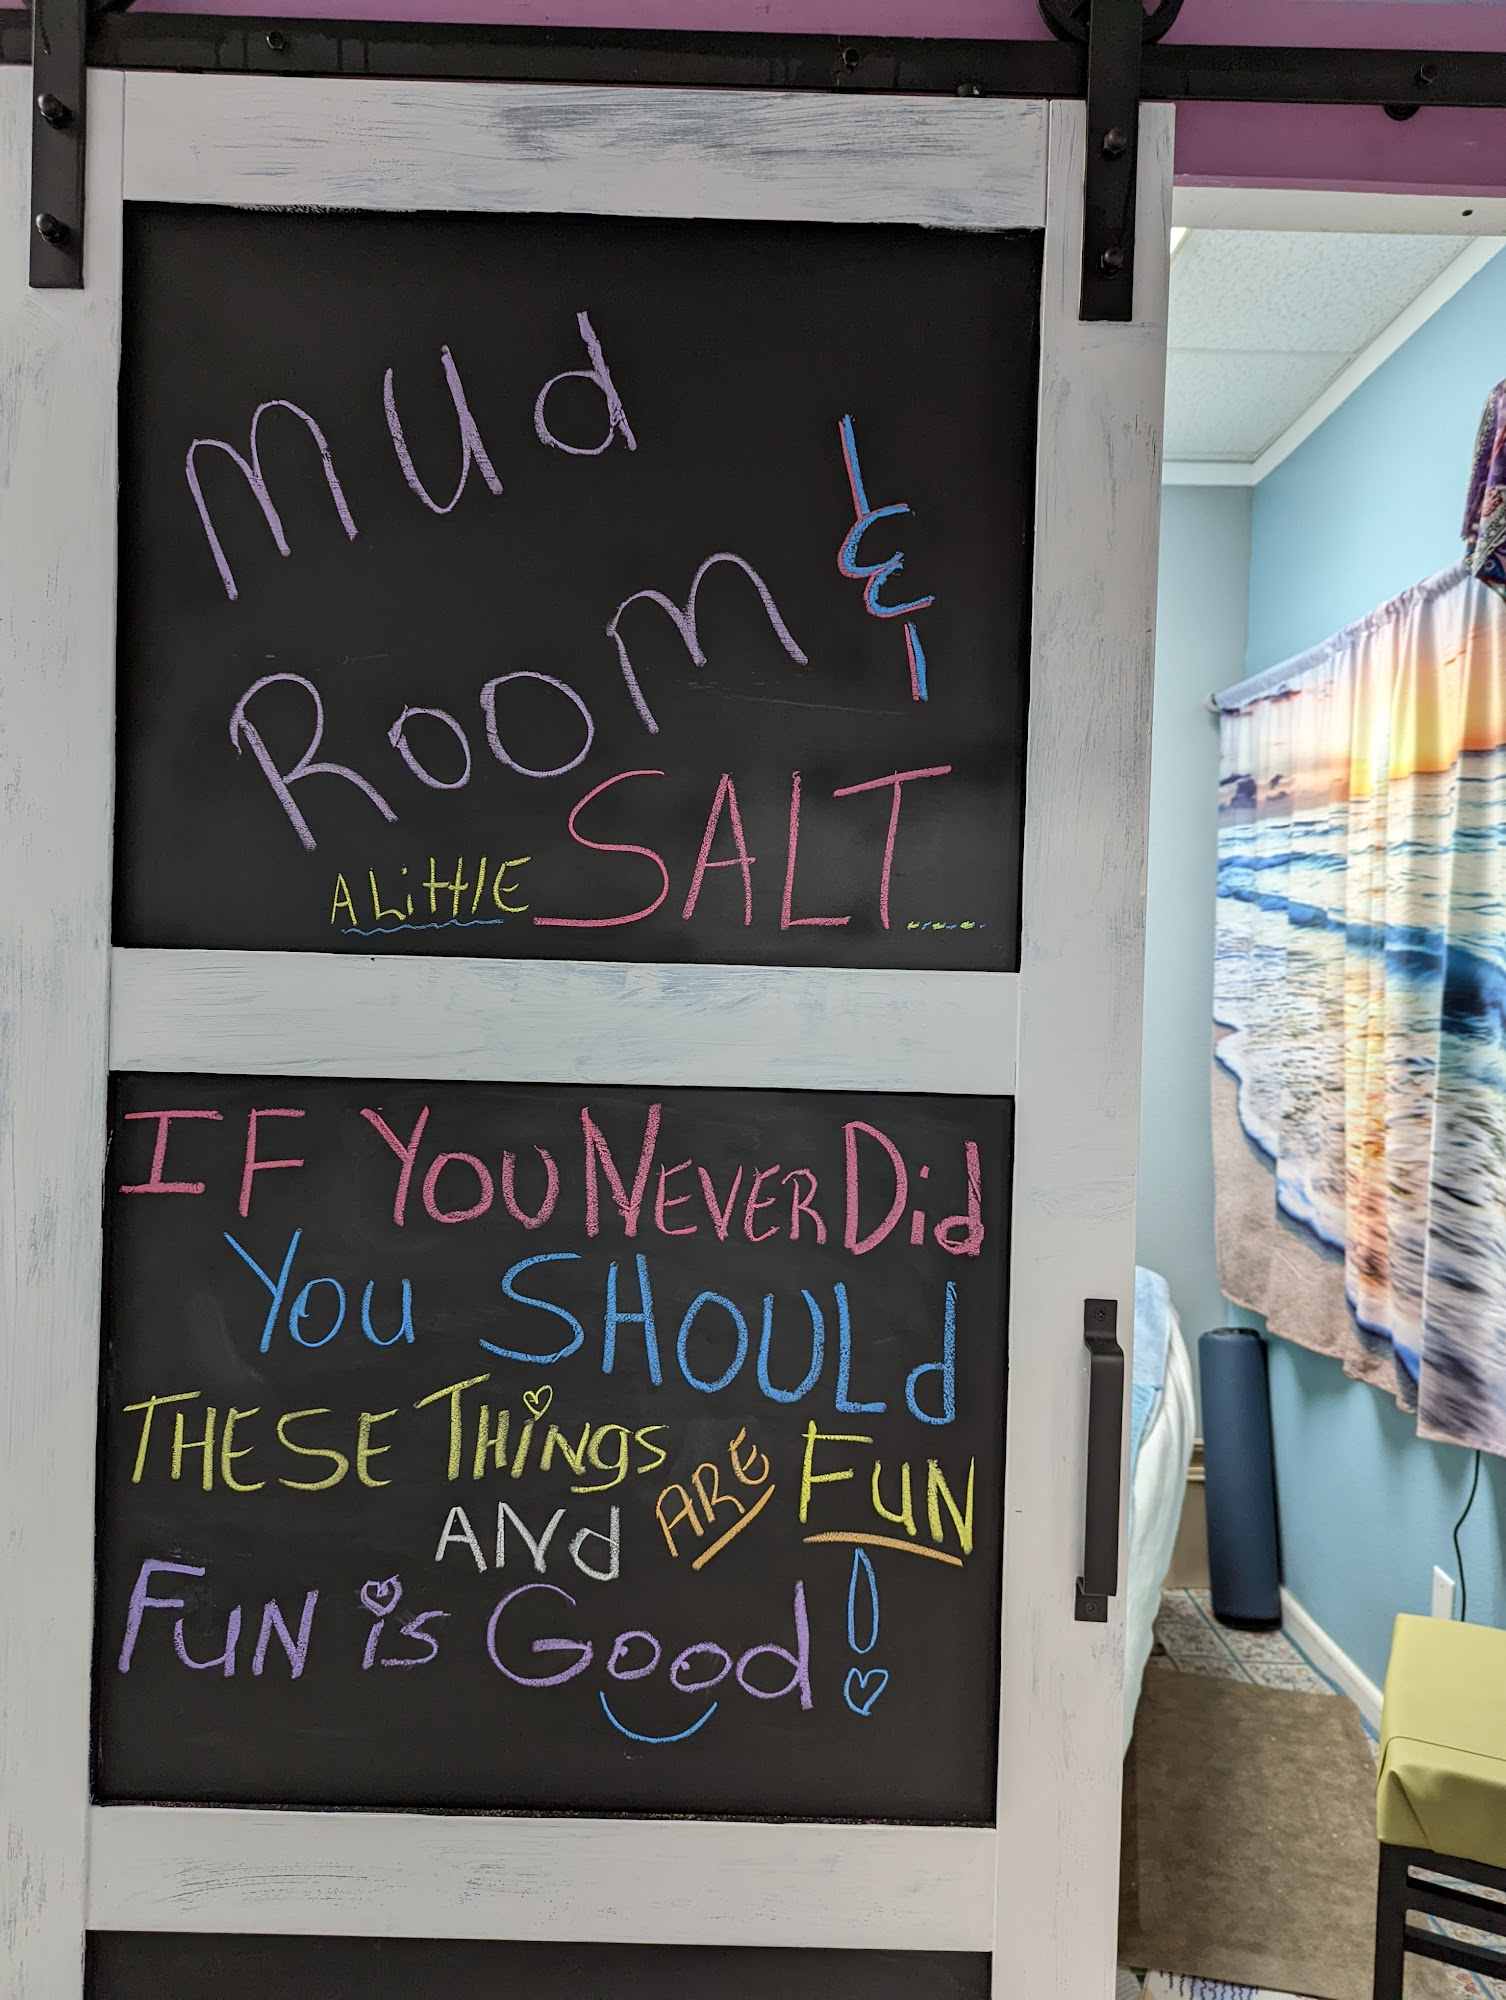 Mud
Room &
A Little SALT.....
IF YOU NEVER Did
You SHOULd
THESE THiNgS ARE FUN
ANd
FUN iS Good!